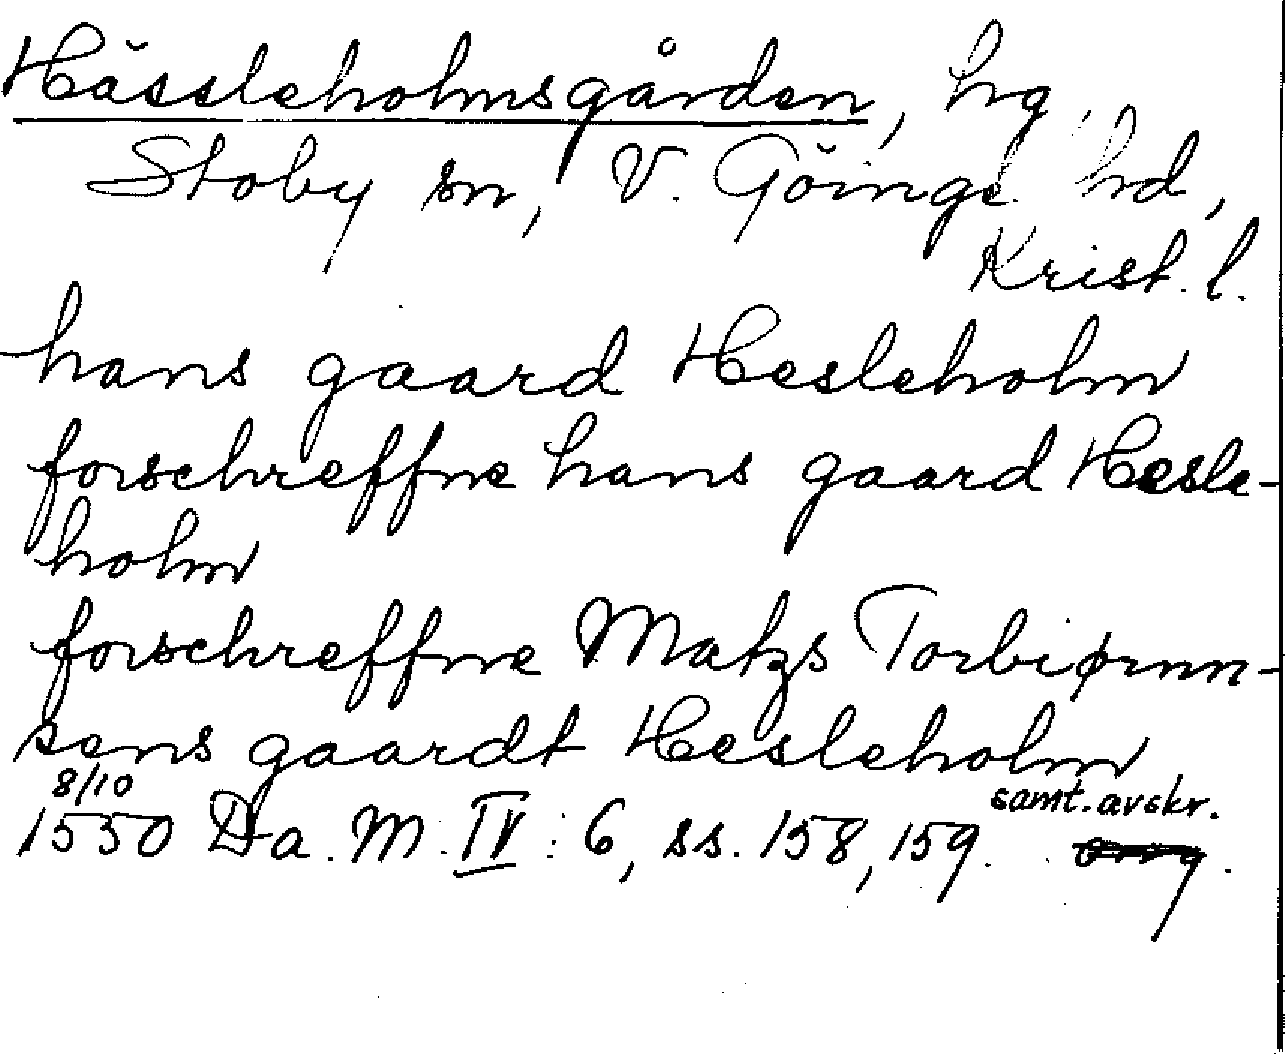 Hässleholmsgården, hg,
Stoby sn, V. Göinge hd,
Krist. l.
hans gaard Hesleholm
forschreffne hans gaard Hesle-
holm
forschreffne Matzs Torbiørnn-
sens gaardt Hesleholm
8/10 samt. avskr.
1550 Da. M. IV: 6, ss. 158, 159. orig.